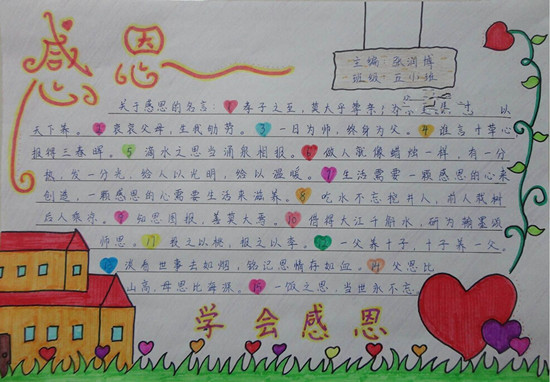 感恩
主编 张润博
班级 五小班
关于感恩的名言：1 孝子之至，莫大乎尊亲；以
天下养。2 哀哀父母，生我劬劳。3 一日为师，终身为父。4 谁言寸草心
报得三春晖。5 滴水之恩当涌泉相报。6 做人就像蜡烛一样，有一分
热，发一分光，给人以光明，给以温暖。7 生活需要一颗感恩的心来
创造，一颗感恩的心需要生活来滋养。8 吃水不忘挖井人，前人栽树
后人乘凉。9 知恩图报，善莫大焉。10 借得大江千斛水，研为翰墨颂
师恩。11 投之以桃，报之以李。12 一父养十子，十子养一父。
13 滚看世事去如烟，铭记恩情存如血。14 父恩比
山高，母恩比海深。15 一饭之恩，当世永不忘
学会感恩